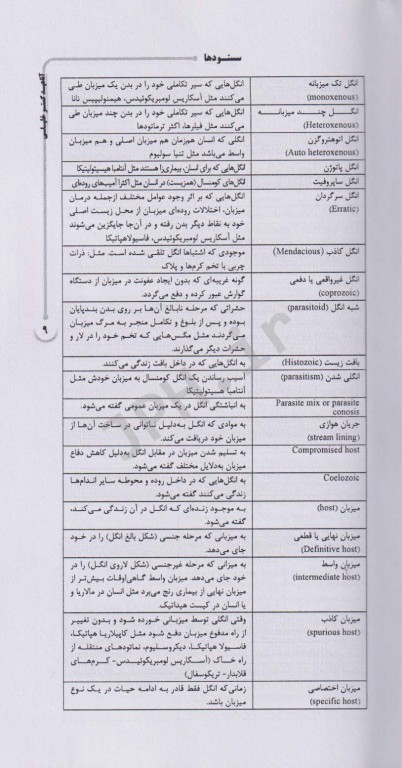 سستودها
انگل تک میزبانه
(monoxenous)
انگل‌هایی که سیر تکاملی خود را در بدن یک میزبان طی
می‌کنند مثل آسکاریس لومبریکوئیدس، هیمنولیپیس نانا
انگل چند میزبانه
(Heteroxenous)
انگل‌هایی که سیر تکاملی خود را در بدن چند میزبان طی
می‌کنند مثل فیلرها، اکثر ترماتودها
انگل اتوهتروگزن
(Auto heteroxenous)
انگلی که انسان هم‌زمان هم میزبان اصلی و هم میزبان
واسط می‌باشد مثل تنیا سولیوم
انگل پاتوژن
انگل‌هایی که برای انسان، بیماری‌زا هستند مثل آنتامبا هیستولیتیکا
انگل ساپروفیت
انگل‌های کومنسال (همزیست) در انسان مثل اکثرا آمیب‌های روده‌ای
انگل سرگردان
(Erratic)
انگل‌هایی که بر اثر وجود عوامل مختلف ازجمله درمان
میزبان، اختلالات روده‌ای میزبان از محل زیست اصلی
خود به نقاط دیگر بدن رفته و در آن‌جا جایگزین می‌شوند
مثل آسکاریس لومبریکوئیدس، فاسیولاهپاتیکا
انگل کاذب (Mendacious)
موجودی که اشتباها انگل تلقی شده است. مثل: ذرات
چربی با تخم کرم‌ها و پلاک
انگل غیرواقعی یا دفعی
(coprozoic)
گونه غریبه‌ای که بدون ایجاد عفونت در میزبان از دستگاه
گوارش عبور کرده و دفع می‌گردد.
شبه انگل (parasitoid)
حشراتی که مرحله نابالغ آن‌ها بر روی بدن بندپایان
بوده و پس از بلوغ و تکامل منجر به مرگ میزبان
می‌گردند مثل مگس‌هایی که تخم خود را در لارو
حشرات دیگر می‌گذارند.
بافت زیست (Histozoic)
به انگل‌هایی که در داخل بافت زندگی می‌کنند.
انگلی شدن (parasitism)
آسیب رساندن یک انگل کومنسال به میزبان خودش مثل
آنتامبا هیستولیتیکا
Parasite mix or parasite
conosis
به انباشتگی انگل در یک میزبان عمومی گفته می‌شود.
جریان هوازی
(stream lining)
به موادی که انگل به‌دلیل ناتوانی در ساخت آن‌ها از
میزبان خود دریافت می‌کند.
Compromised host
به تسلیم شدن میزبان در مقابل انگل به‌دلیل کاهش دفاع
میزبان به‌دلایل مختلف گفته می‌شود.
Coelozoic
به انگل‌هایی که در داخل روده و محوطه سایر اندام‌ها
زندگی می‌کنند گفته می‌شود.
میزبان (host)
به موجود زنده‌ای که انگل در آن زندگی می‌کند،
گفته می‌شود.
میزبان نهایی یا قطعی
(Definitive host)
به میزبانی که مرحله جنسی (شکل بالغ انگل) را در خود
جای می‌دهد.
میزبان واسط
(intermediate host)
به میزانی که مرحله غیرجنسی (شکل لاروی انگل) را در
خود جای می‌دهد. میزبان واسط گاهی‌اوقات بیش‌تر از
میزبان نهایی از بیماری رنج می‌برد مثل انسان در مالاریا و
یا انسان در کیست هیداتیک.
میزبان کاذب
(spurious host)
وقتی انگلی توسط میزبانی خورده شود و بدون تغییر
از راه مدفوع میزبان دفع شود مثل کاپیلاریا هپاتیکا،
فاسیولا هپاتیکا، دیکروسلیوم، نماتودهای منتقله از
راه خاک (آسکاریس لومبریکوئیدس- کرم‌های
قلابدار- تریکوسفال)
میزبان اختصاصی
(specific host)
زمانی‌که انگل فقط قادر به ادامه حیات در یک نوع
میزبان باشد.